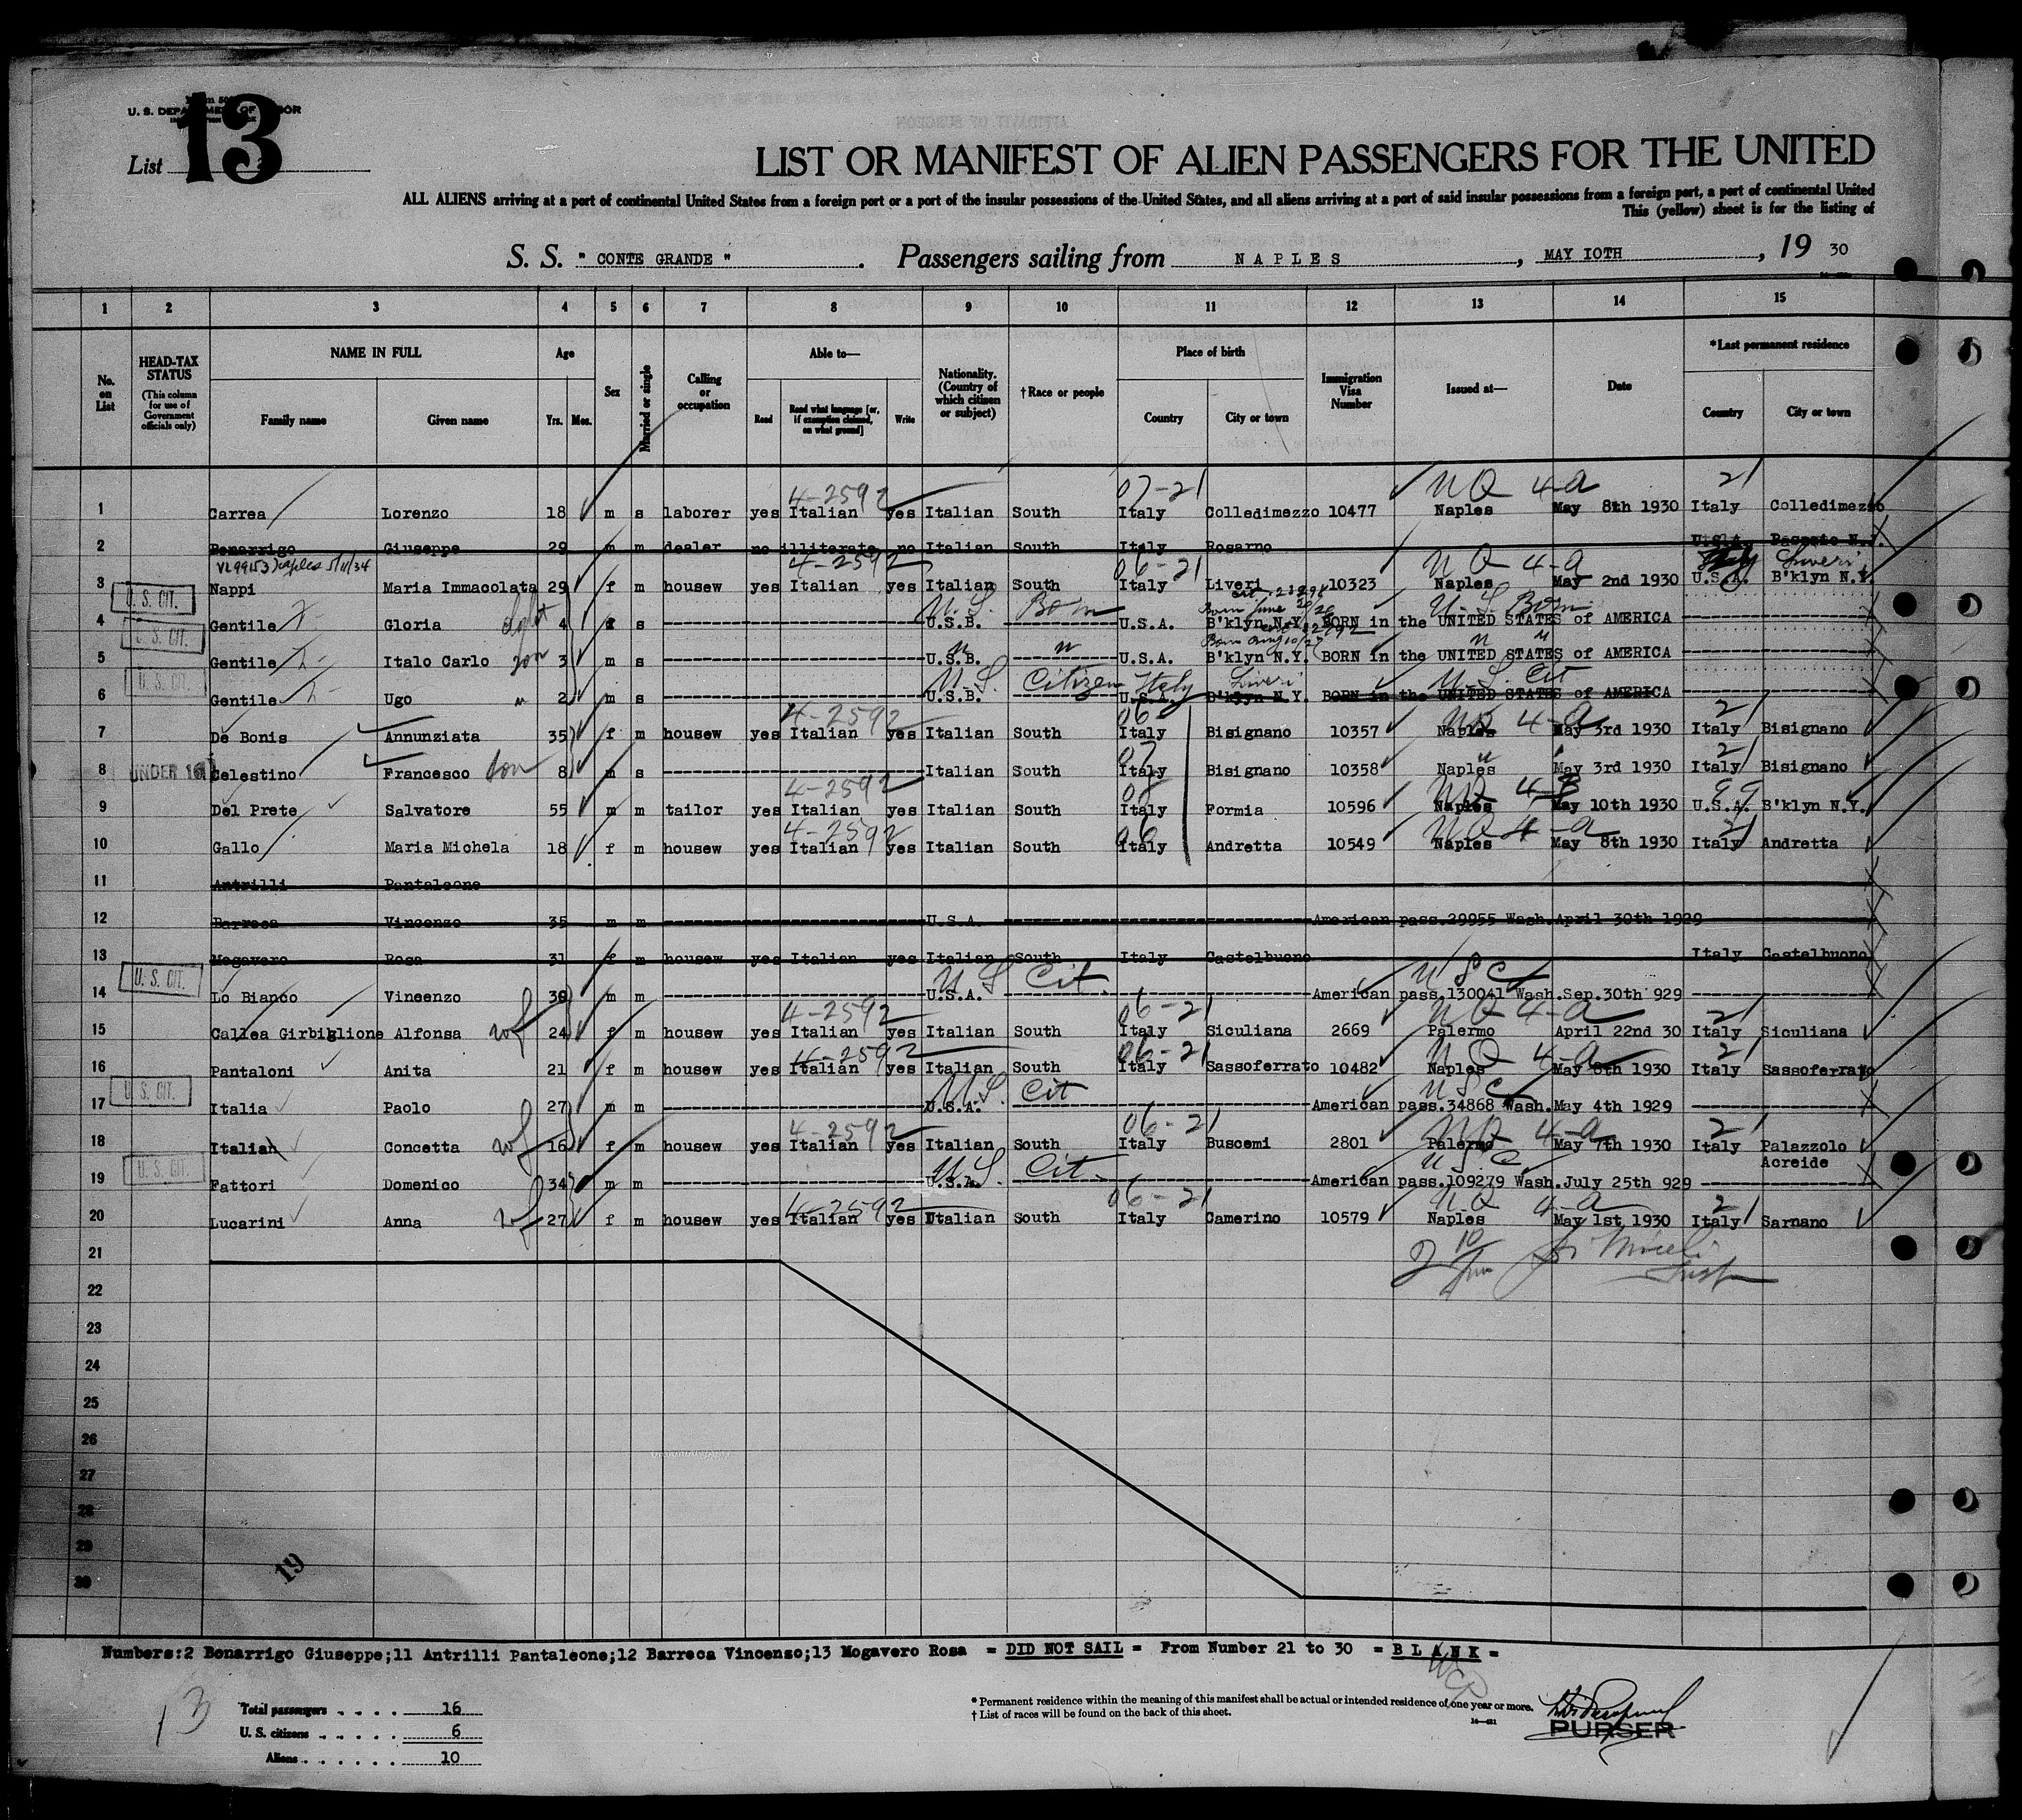 U. S. DEPARTMENT OF LABOR
List 13
LIST OR MANIFEST OF ALIEN PASSENGERS FOR THE UNITED
ALL ALIENS arriving at a port of continental United States from a foreign port or a port of the insular possessions of the United States, and all aliens arriving at a port of said insular possessions from a foreign port, a port of continental United
This (yellow) sheet is for the listing of
S. S. " CONTE GRANDE " . Passengers sailing from NAPLES , MAY IOTH , 19 30
1 2 3 4 5 6 7 8 9 10 11 12 13 14 15
No. on List
HEAD-TAX STATUS (This column for use of Government officials only)
NAME IN FULL Family name Given name
Age Yrs. Mos.
Sex
Married or single
Calling or occupation
Able to— Read Read what language [or, if exemption claimed, on what ground] Write
Nationality. (Country of which citizen or subject)
†Race or people
Place of birth Country City or town
Immigration Visa Number
Issued at—
Date
*Last permanent residence Country City or town
4-2592 07-21 NQ 4-a 21
1 Carrea Lorenzo 18 m s laborer yes Italian yes Italian South Italy Colledimezzo 10477 Naples May 8th 1930 Italy Colledimezzo
2 Bonarrigo Giuseppe 29 m m dealer no illiterate no Italian South Italy Rosarno U.S.A. Passaic N.J.
4-2592 06-21 NQ 4-a Italy Liveri
3 Nappi Maria Immacolata 29 f m housew yes Italian yes Italian South Italy Liveri 10323 Naples May 2nd 1930 U.S.A. B'klyn N.Y.
U. S. CIT.
U.S. Born Born June U.S. Born
4 Gentile Gloria 4 f s U.S.B. U.S.A. B'klyn N.Y. BORN in the UNITED STATES of AMERICA
U. S. CIT.
5 Gentile Italo Carlo son 3 m s U.S.B. U.S.A. B'klyn N.Y. BORN in the UNITED STATES of AMERICA
U. S. CIT.
U.S. Citizen Italy Liveri U.S. Cit
6 Gentile Ugo " 2 m s U.S.B. U.S.A. B'klyn N.Y. BORN in the UNITED STATES of AMERICA
4-2592 06 NQ 4-a 21
7 De Bonis Annunziata 35 f m housew yes Italian yes Italian South Italy Bisignano 10357 Naples May 3rd 1930 Italy Bisignano
07 " 21
8 UNDER 16 Celestino Francesco son 8 m s Italian South Italy Bisignano 10358 Naples May 3rd 1930 Italy Bisignano
4-2592 NQ 99
9 Del Prete Salvatore 55 m m tailor yes Italian yes Italian South Italy Formia 10596 Naples May 10th 1930 U.S.A. B'klyn N.Y.
4-2592 06 NQ 4-a 21
10 Gallo Maria Michela 18 f m housew yes Italian yes Italian South Italy Andretta 10549 Naples May 8th 1930 Italy Andretta
11 Antrilli Pantaleone
12 Barreca Vincenzo 35 m m U.S.A. American pass.29955 Wash.April 30th 1929
13 Mogavero Rosa 31 f m housew yes Italian yes Italian South Italy Castelbuono Italy Castelbuono
U. S. CIT.
U S Cit. U S C
14 Lo Bianco Vincenzo 30 m m U.S.A. American pass.130041 Wash.Sep.30th 929
4-2592 06-21 NQ 4-a 21
15 Callea Girbiglione Alfonsa wf 24 f m housew yes Italian yes Italian South Italy Siculiana 2669 Palermo April 22nd 30 Italy Siculiana
4-2592 06-21 NQ 4-a 21
16 Pantaloni Anita 21 f m housew yes Italian yes Italian South Italy Sassoferrato 10482 Naples May 8th 1930 Italy Sassoferrato
U. S. CIT.
U.S. Cit U S C
17 Italia Paolo 27 m m U.S.A. American pass.34868 Wash.May 4th 1929
4-2592 06-21 NQ 4-a 21
18 Italian Concetta wf 16 f m housew yes Italian yes Italian South Italy Buscemi 2801 Palermo May 7th 1930 Italy Palazzolo Acreide
U. S. CIT.
U.S. Cit. U S C
19 Fattori Domenico 34 m m U.S.A. American pass.109279 Wash.July 25th 929
4-2592 06-21 NQ 4-a 21
20 Lucarini Anna wf 27 f m housew yes Italian yes Italian South Italy Camerino 10579 Naples May 1st 1930 Italy Sarnano
21
22
23
24
25
26
27
28
29
30
19
Numbers:2 Bonarrigo Giuseppe;11 Antrilli Pantaleone;12 Barreca Vincenzo;13 Mogavero Rosa = DID NOT SAIL = From Number 21 to 30 = BLANK =
13
Total passengers . . . . 16
U. S. citizens . . . . . 6
Aliens . . . . . . 10
* Permanent residence within the meaning of this manifest shall be actual or intended residence of one year or more.
† List of races will be found on the back of this sheet.
PURSER